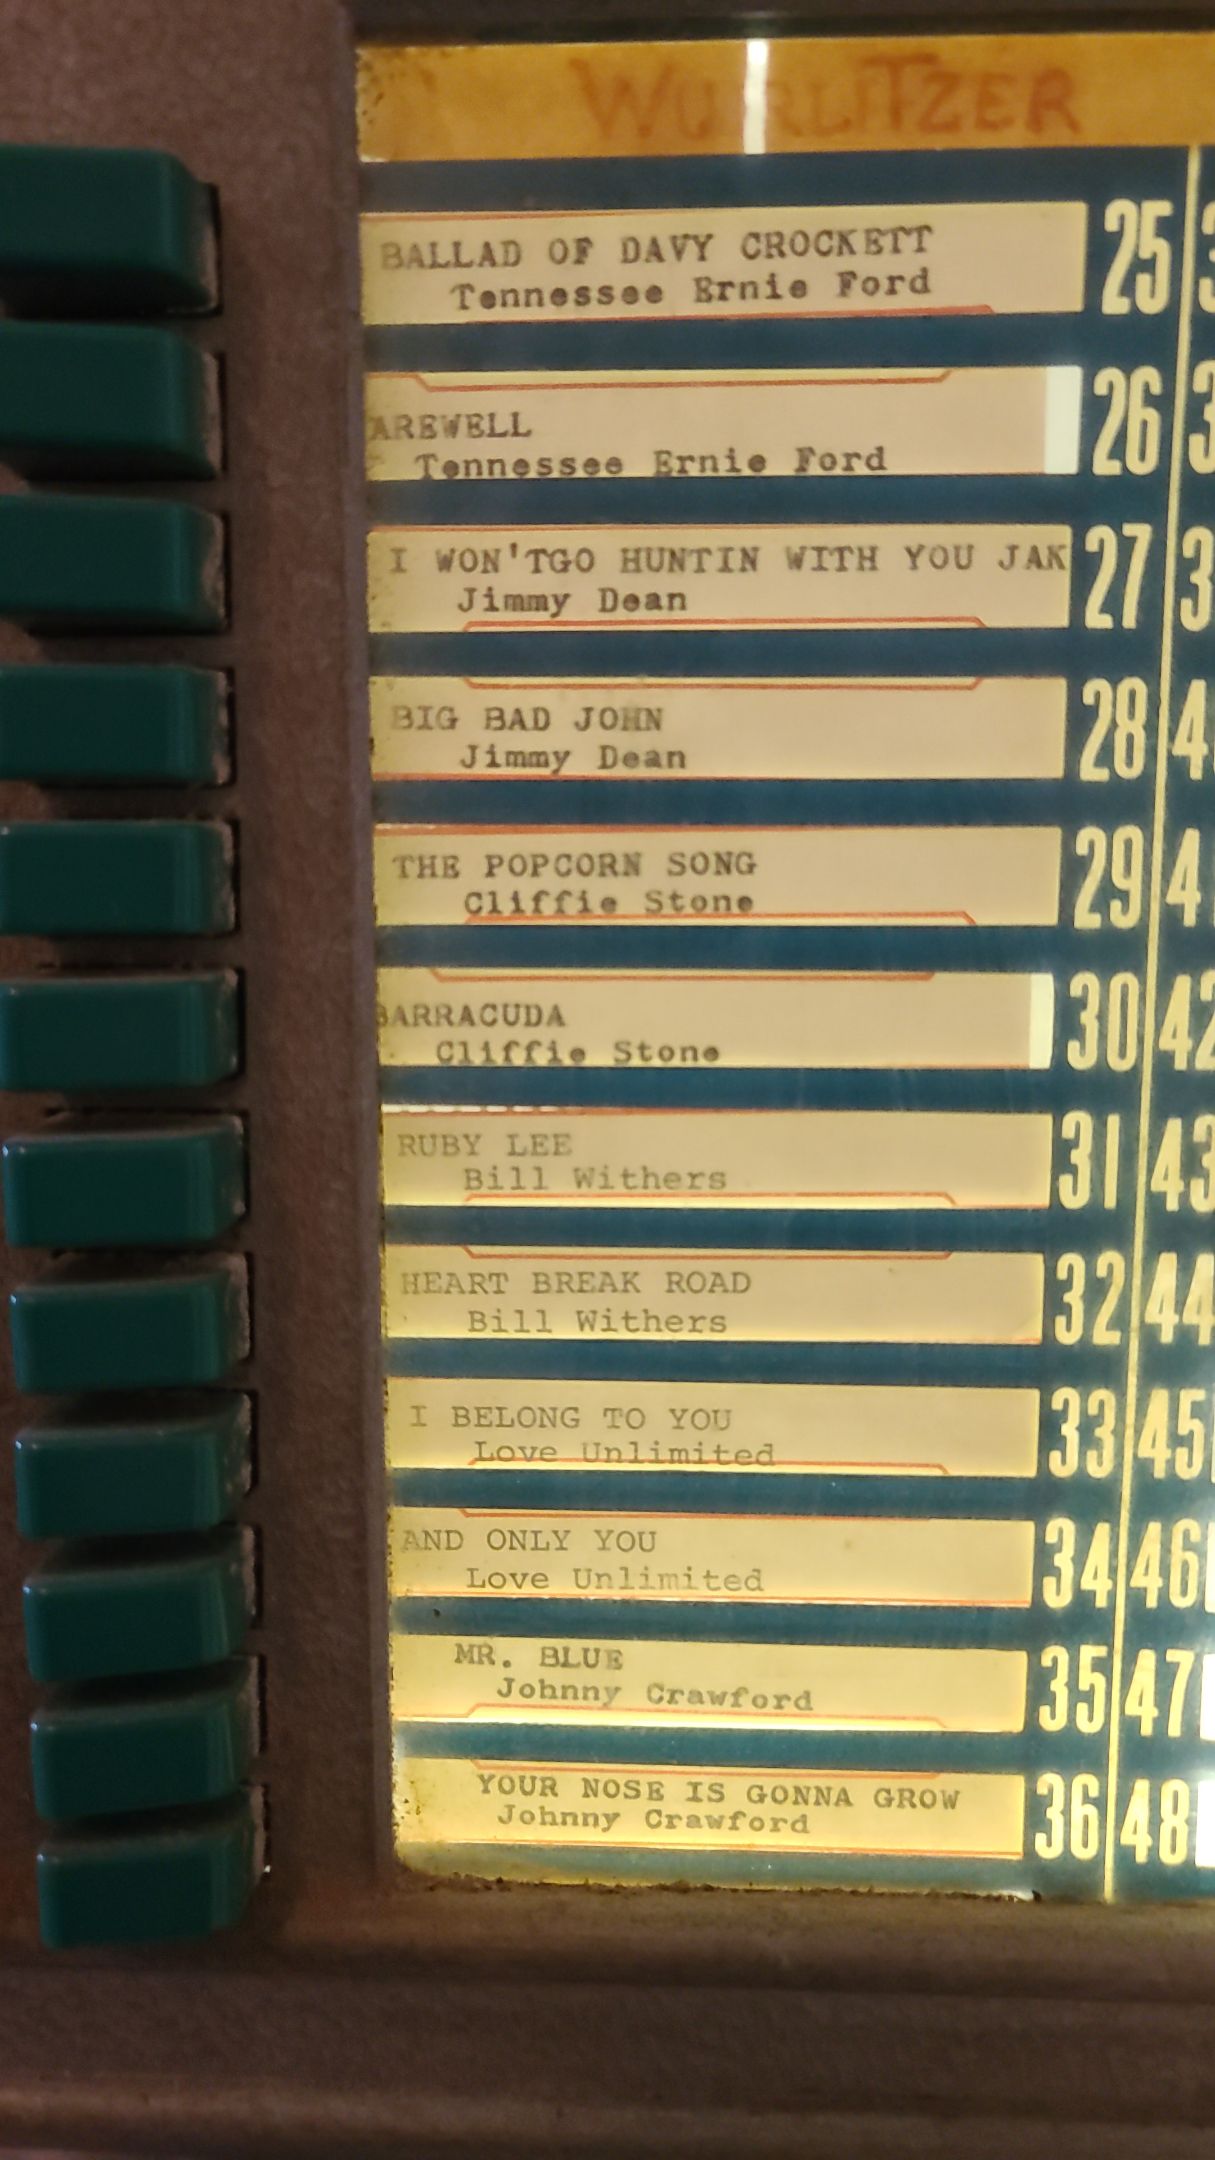 WURLITZER
BALLAD OF DAVY CROCKETT 25
Tennessee Ernie Ford
AREWELL 26
Tennessee Ernie Ford
I WON'TGO HUNTIN WITH YOU JAK 27
Jimmy Dean
BIG BAD JOHN 28
Jimmy Dean
THE POPCORN SONG 29
Cliffie Stone
BARRACUDA 30 42
Cliffie Stone
RUBY LEE 31 43
Bill Withers
HEART BREAK ROAD 32 44
Bill Withers
I BELONG TO YOU 33 45
Love Unlimited
AND ONLY YOU 34 46
Love Unlimited
MR. BLUE 35 47
Johnny Crawford
YOUR NOSE IS GONNA GROW 36 48
Johnny Crawford